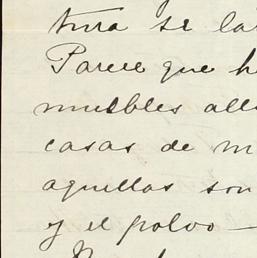 tura se la
Parece que h
muebles all
casas de m
aquellas son
y el polvo —